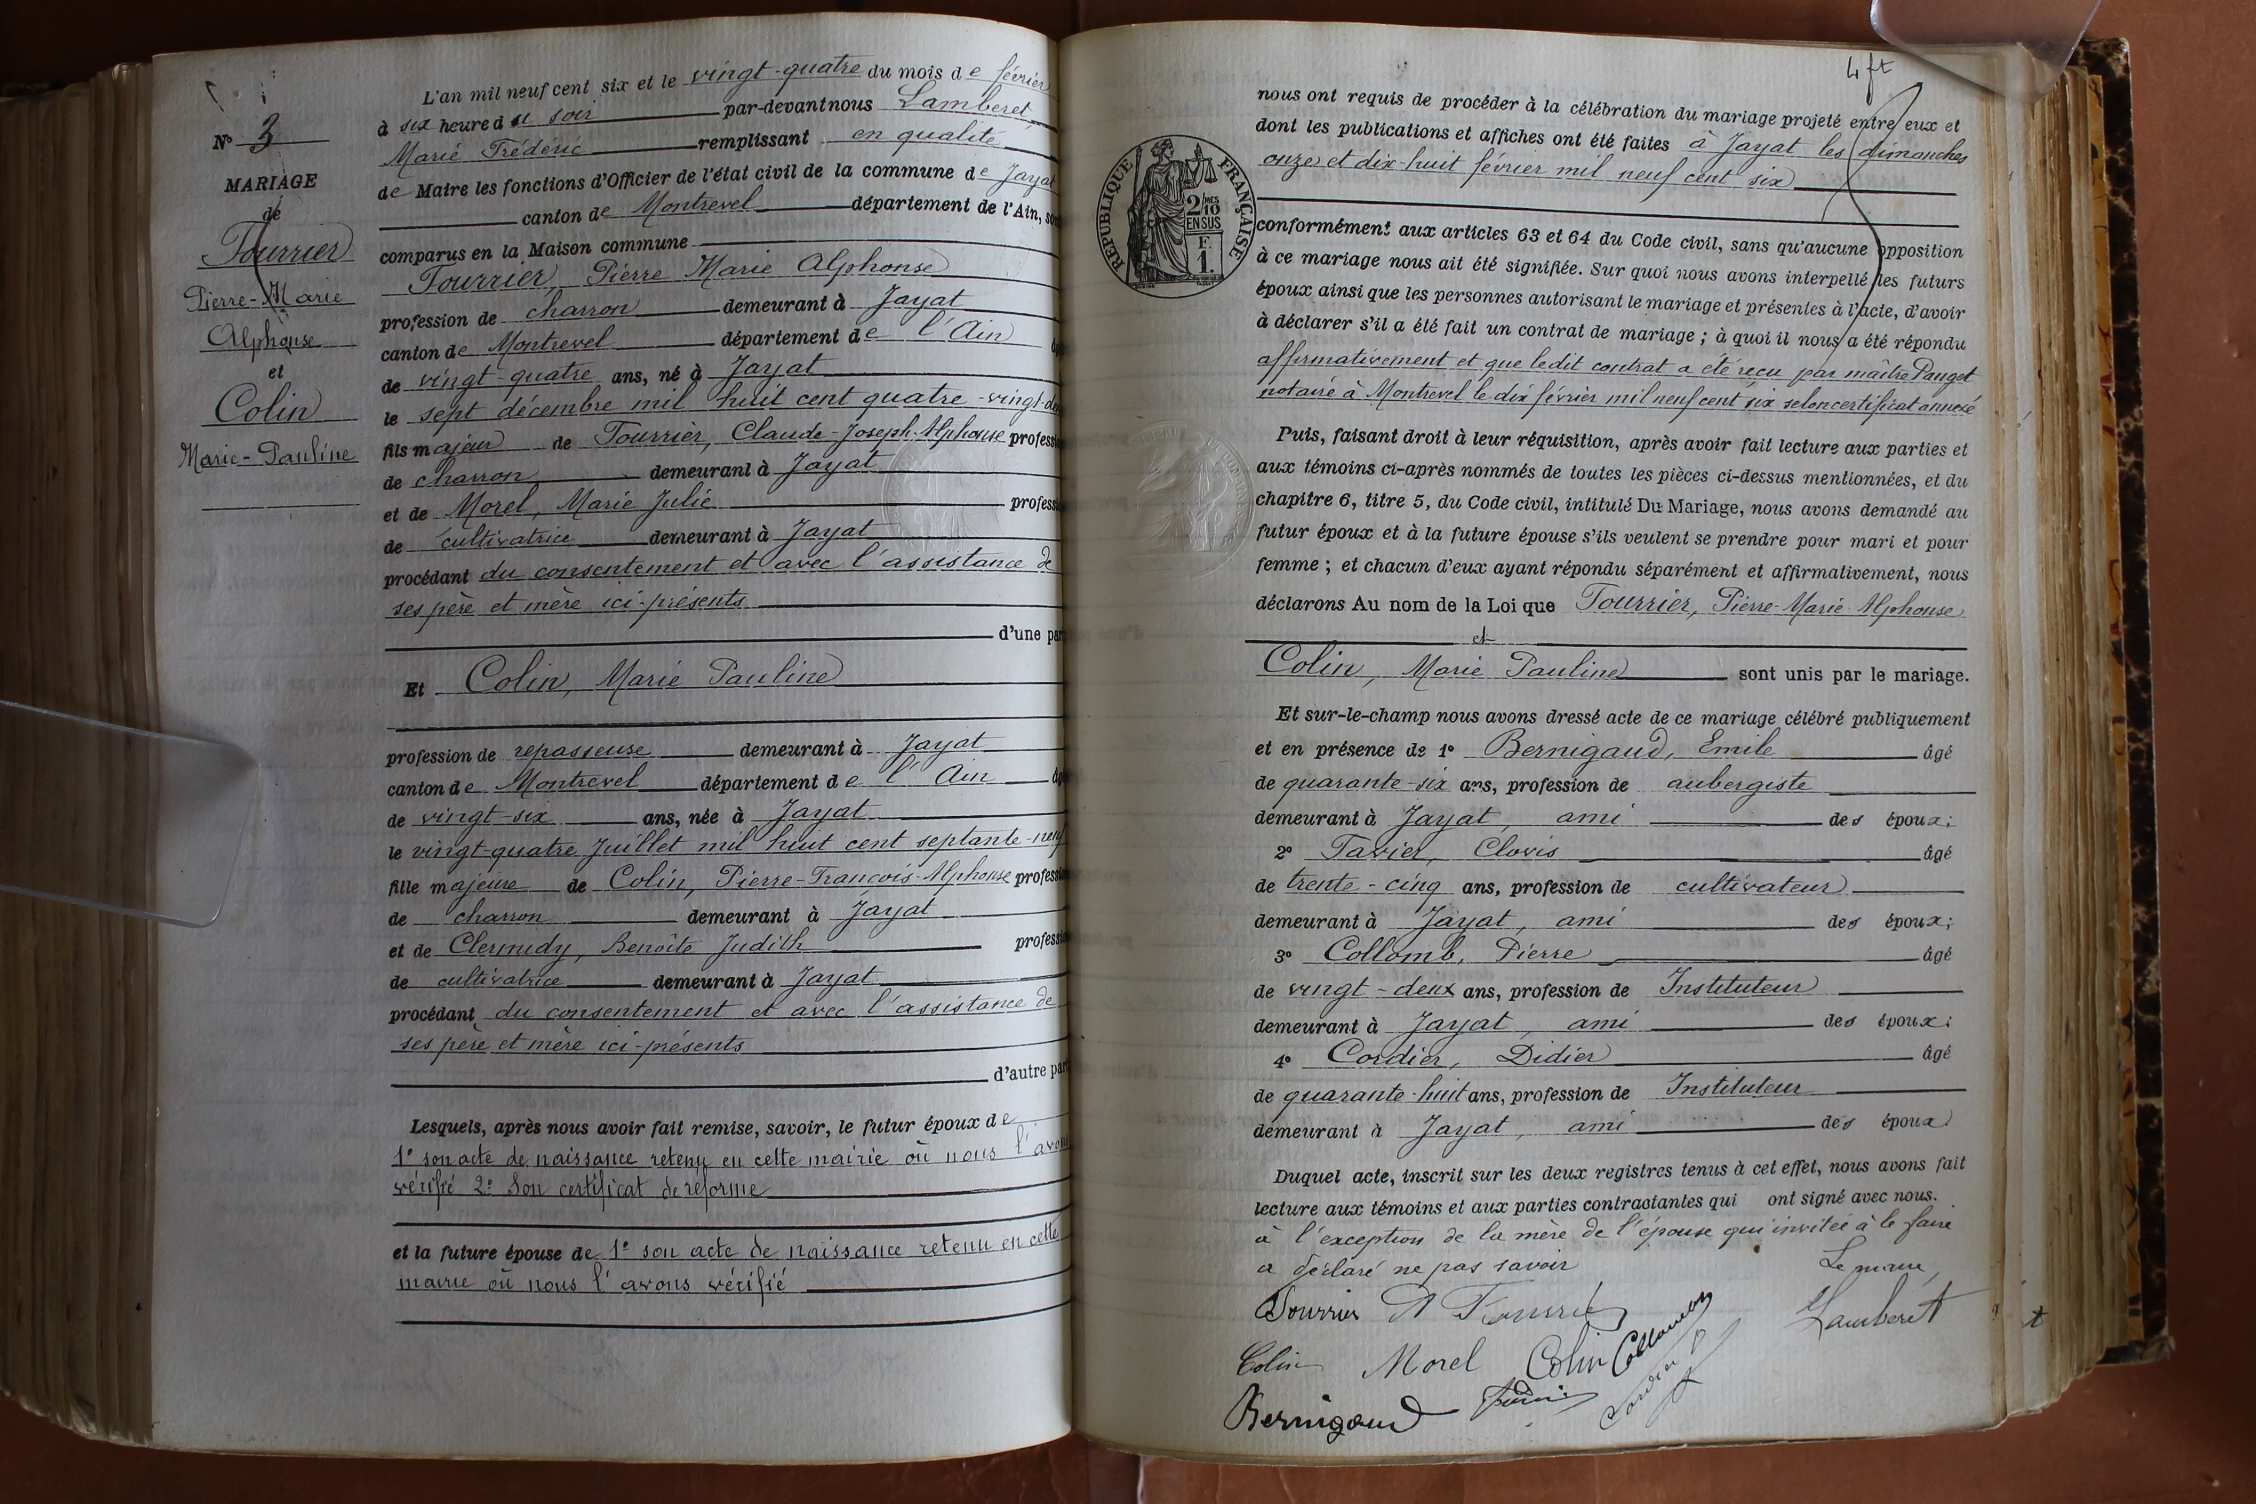 N° 3
MARIAGE
de
Fourrier
Pierre-Marie
Alphonse
et
Colin
Marie-Pauline
L'an mil neuf cent six et le vingt-quatre du mois de février
à six heures du soir par-devant nous Lamberet,
Marie Frédéric remplissant en qualité
de Maire les fonctions d'Officier de l'état civil de la commune de Jayat
canton de Montrevel département de l'Ain, sont
comparus en la Maison commune
Fourrier, Pierre Marie Alphonse
profession de charron demeurant à Jayat
canton de Montrevel département de l'Ain
de vingt-quatre ans, né à Jayat
le sept décembre mil huit cent quatre-vingt-
fils majeur de Fourrier, Claude-Joseph-Alphonse profession
de charron demeurant à Jayat
et de Morel, Marie Julie profession
de cultivatrice demeurant à Jayat
procédant du consentement et avec l'assistance de
ses père et mère ici-présents
d'une part
Et Colin, Marie Pauline
profession de repasseuse demeurant à Jayat
canton de Montrevel département de l'Ain
de vingt-six ans, née à Jayat
le vingt-quatre Juillet mil huit cent septante-neuf
fille majeure de Colin, Pierre-François-Alphonse profession
de charron demeurant à Jayat
et de Clermidy, Benoîte Judith profession
de cultivatrice demeurant à Jayat
procédant du consentement et avec l'assistance de
ses père et mère ici-présents
d'autre part
Lesquels, après nous avoir fait remise, savoir, le futur époux de
1° son acte de naissance retenu en cette mairie où nous l'avons
vérifié 2° Son certificat de réforme
et la future épouse de 1° son acte de naissance retenu en cette
mairie où nous l'avons vérifié
4 ft
RÉPUBLIQUE FRANÇAISE
2/10 EN SUS
F. 1.
nous ont requis de procéder à la célébration du mariage projeté entre eux et
dont les publications et affiches ont été faites à Jayat les dimanches
onze et dix-huit février mil neuf cent six
conformément aux articles 63 et 64 du Code civil, sans qu'aucune opposition
à ce mariage nous ait été signifiée. Sur quoi nous avons interpellé les futurs
époux ainsi que les personnes autorisant le mariage et présentes à l'acte, d'avoir
à déclarer s'il a été fait un contrat de mariage ; à quoi il nous a été répondu
affirmativement et que ledit contrat a été reçu par maître Pauget
notaire à Montrevel le dix février mil neuf cent six selon certificat annexé
Puis, faisant droit à leur réquisition, après avoir fait lecture aux parties et
aux témoins ci-après nommés de toutes les pièces ci-dessus mentionnées, et du
chapitre 6, titre 5, du Code civil, intitulé Du Mariage, nous avons demandé au
futur époux et à la future épouse s'ils veulent se prendre pour mari et pour
femme ; et chacun d'eux ayant répondu séparément et affirmativement, nous
déclarons Au nom de la Loi que Fourrier, Pierre-Marie-Alphonse
et
Colin, Marie Pauline sont unis par le mariage.
Et sur-le-champ nous avons dressé acte de ce mariage célébré publiquement
et en présence de 1° Bernigaud, Emile âgé
de quarante-six ans, profession de aubergiste
demeurant à Jayat, ami des époux;
2° Tavier, Clovis âgé
de trente-cinq ans, profession de cultivateur
demeurant à Jayat, ami des époux;
3° Collomb, Pierre âgé
de vingt-deux ans, profession de Instituteur
demeurant à Jayat, ami des époux;
4° Cordier, Didier âgé
de quarante-huit ans, profession de Instituteur
demeurant à Jayat, ami des époux
Duquel acte, inscrit sur les deux registres tenus à cet effet, nous avons fait
lecture aux témoins et aux parties contractantes qui ont signé avec nous.
à l'exception de la mère de l'épouse qui invitée à le faire
a déclaré ne pas savoir
Le maire,
Fourrier A Fourrier Lamberet
Colin Morel Colin Collomb
Bernigaud Cordier D